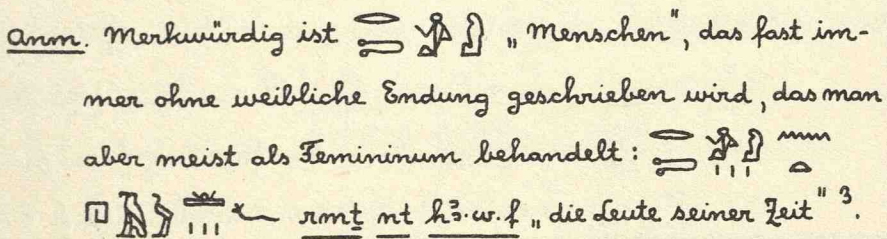 Anm. Merkwürdig ist 𓂋𓍿𓀀𓁐 „Menschen“, das fast im-
mer ohne weibliche Endung geschrieben wird, das man
aber meist als Femininum behandelt: 𓂋𓍿𓀀𓁐𓏥 𓈖𓏏
𓉔𓄿𓅱𓏛𓏥𓆑 rmṯ nt hꜣ.w.f „die Leute seiner Zeit“ 3.